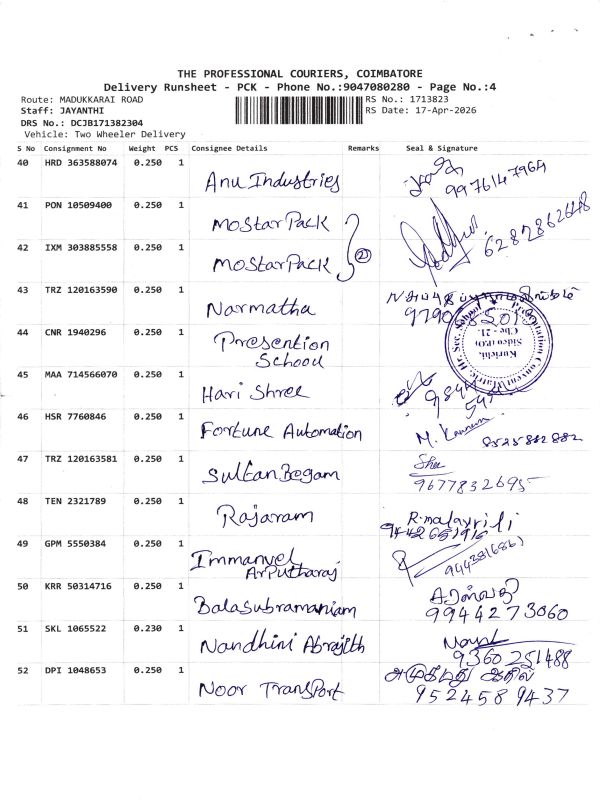 THE PROFESSIONAL COURIERS, COIMBATORE
Delivery Runsheet - PCK - Phone No.:9047080280 - Page No.:4
Route: MADUKKARAI ROAD
RS No.: 1713823
Staff: JAYANTHI
RS Date: 17-Apr-2026
DRS No.: DCJB171382304
Vehicle: Two Wheeler Delivery
S No Consignment No Weight PCS Consignee Details Remarks Seal & Signature
40 HRD 363588074 0.250 1
Anu Industries
9976147964
41 PON 10509400 0.250 1
MostarPack
6282862648
42 IXM 303885558 0.250 1
MostarPack
(2)
43 TRZ 120163590 0.250 1
Narmatha
9790
44 CNR 1940296 0.250 1
Presention
School
Presentation Convent Matric. Hr. Sec. School
Kurichi,
Sidco (P.O)
Cbe - 21.
45 MAA 714566070 0.250 1
Hari Shree
46 HSR 7760846 0.250 1
Fortune Automation
M. Kannan
8525882882
47 TRZ 120163581 0.250 1
Sultan Begam
9677832695
48 TEN 2321789 0.250 1
Rajaram
49 GPM 5550384 0.250 1
Immanuel
Arputharaj
50 KRR 50314716 0.250 1
Balasubramaniam
9944273060
51 SKL 1065522 0.230 1
Nandhini Abrajith
9360251488
52 DPI 1048653 0.250 1
Noor Transport
9524589437